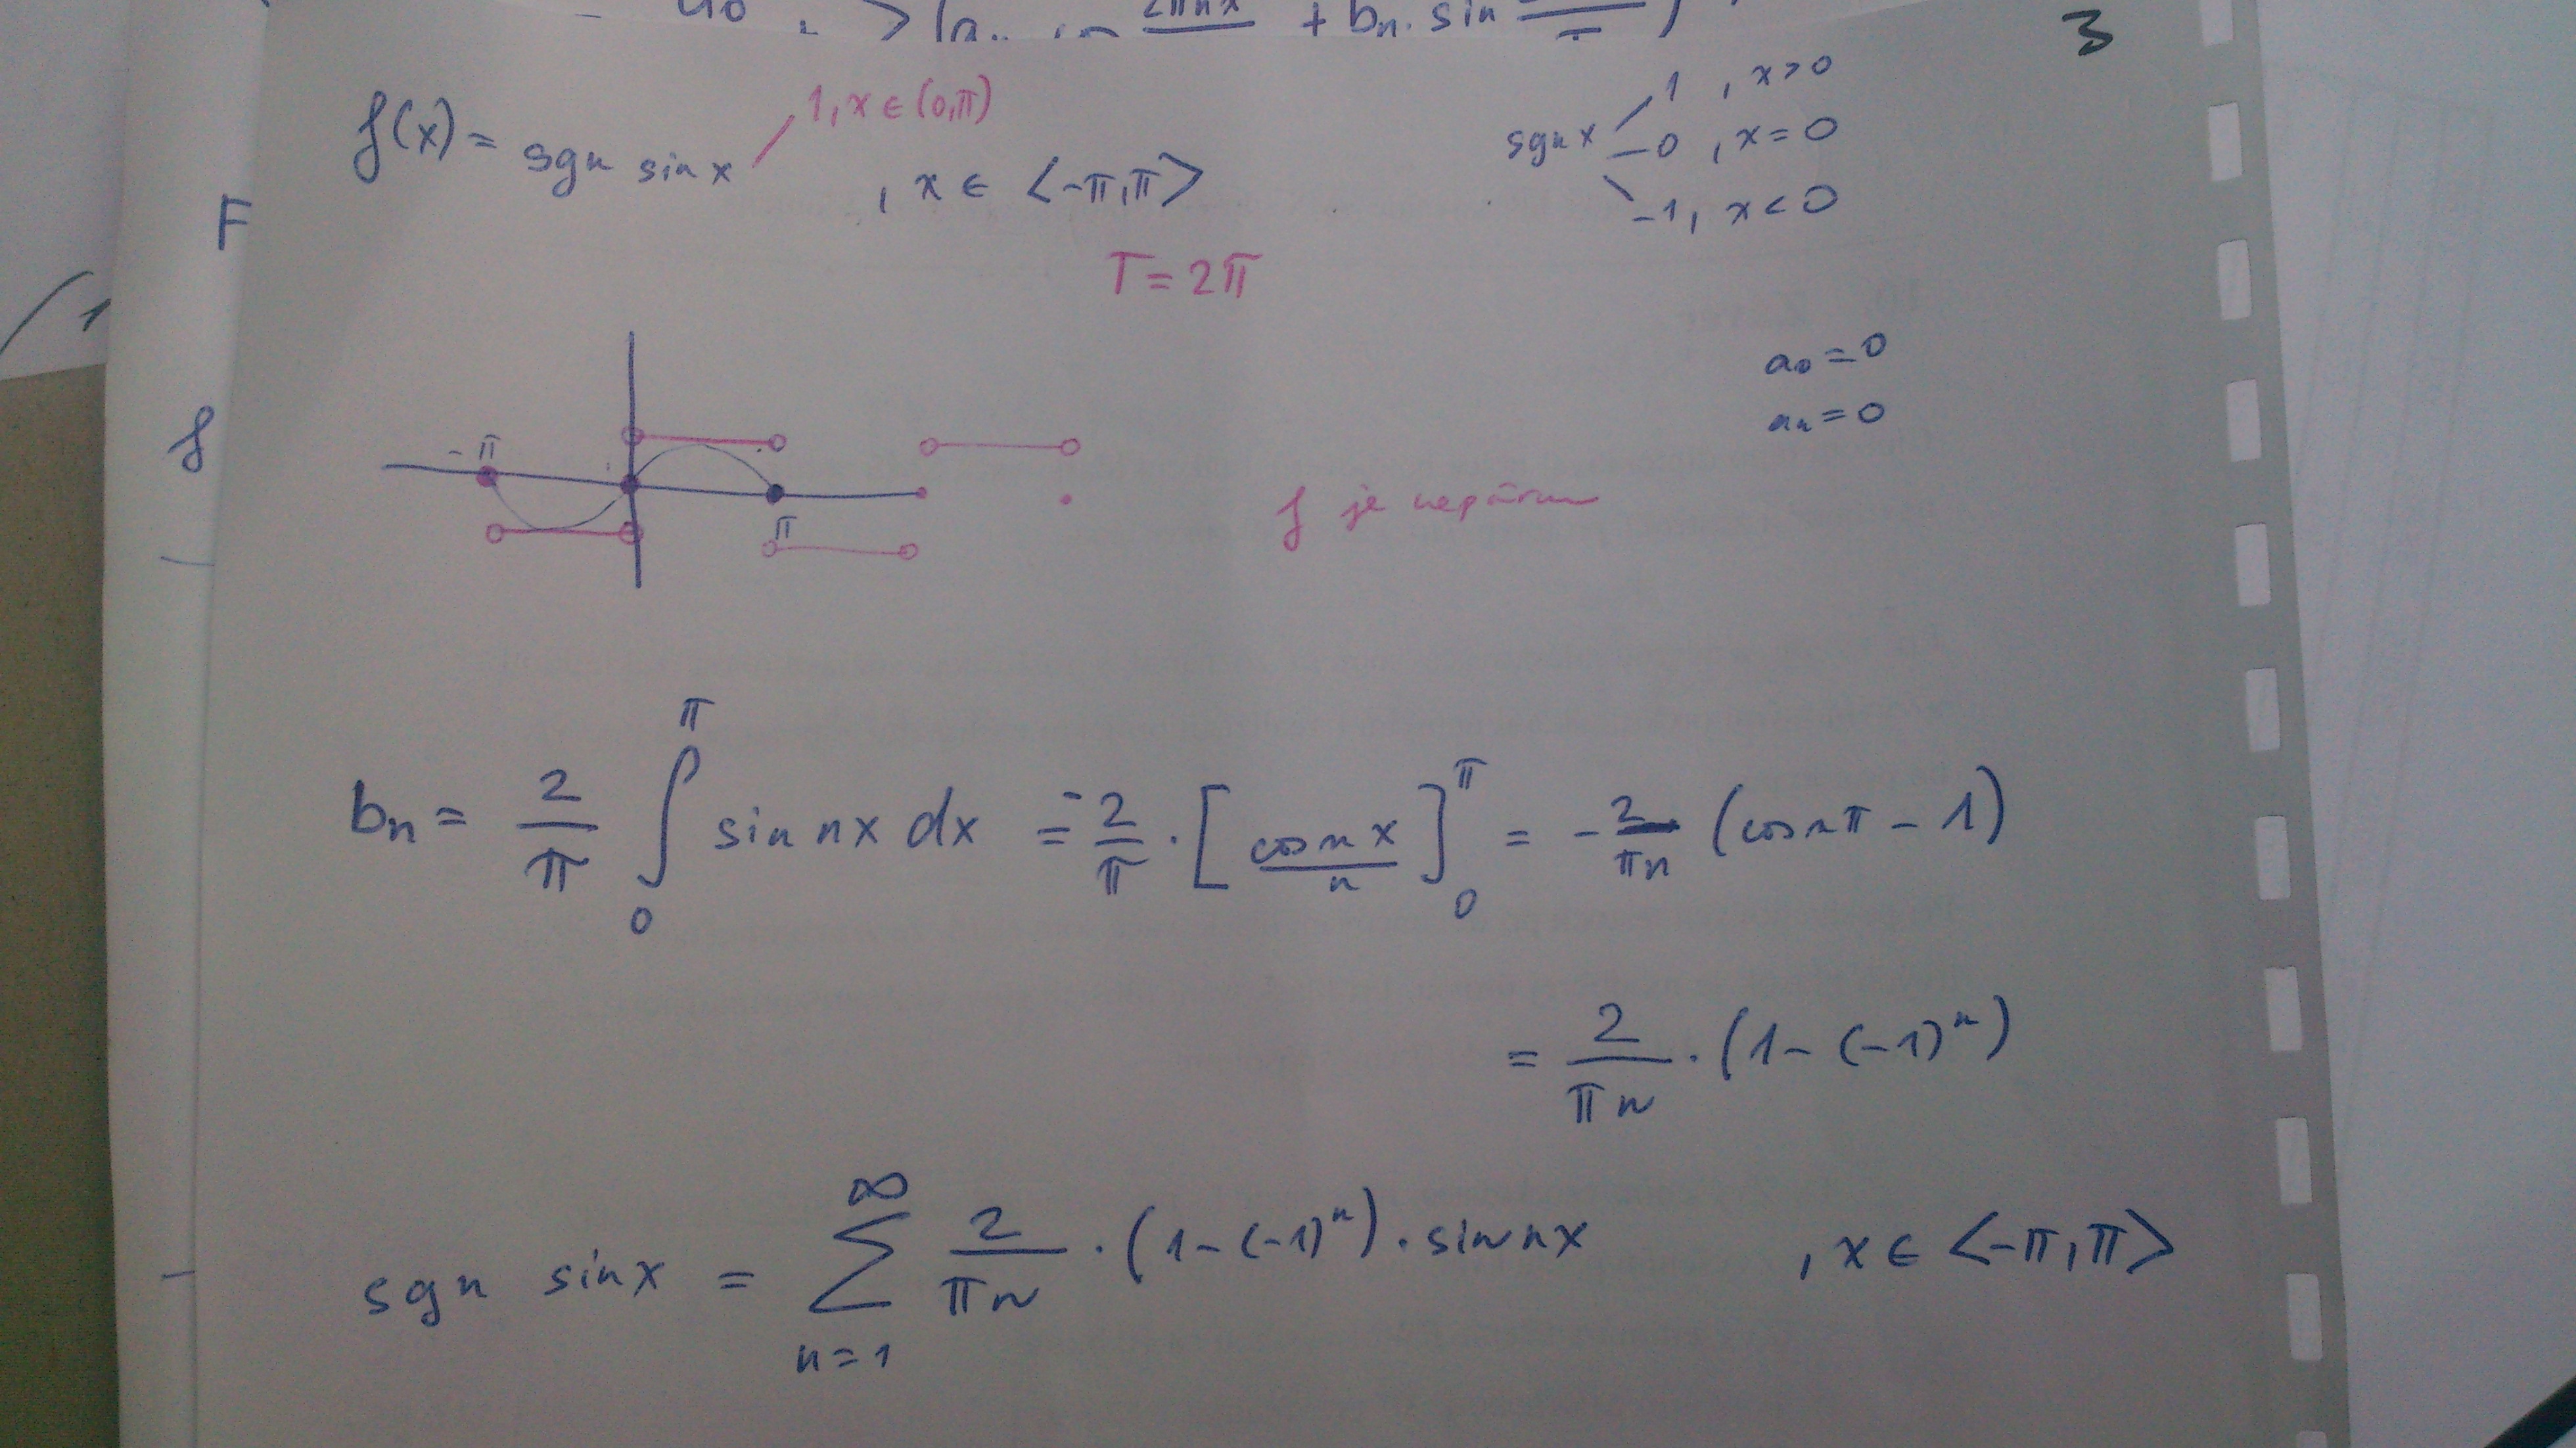 + bₙ. sin
3
f(x) = sgn sin x
1, x ∈ (0,π)
, x ∈ <-π,π>
sgn x
1 , x>0
0 , x=0
-1, x<0
F
T=2π
a₀=0
aₙ=0
f
-π
π
f je nepárna
bₙ = 2/π ∫₀^π sin nx dx = -2/π · [cos nx / n]₀^π = -2/πn (cos nπ - 1)
= 2/πn · (1-(-1)ⁿ)
sgn sin x = ∑_{n=1}^∞ 2/πn · (1-(-1)ⁿ) · sin nx , x ∈ <-π,π>